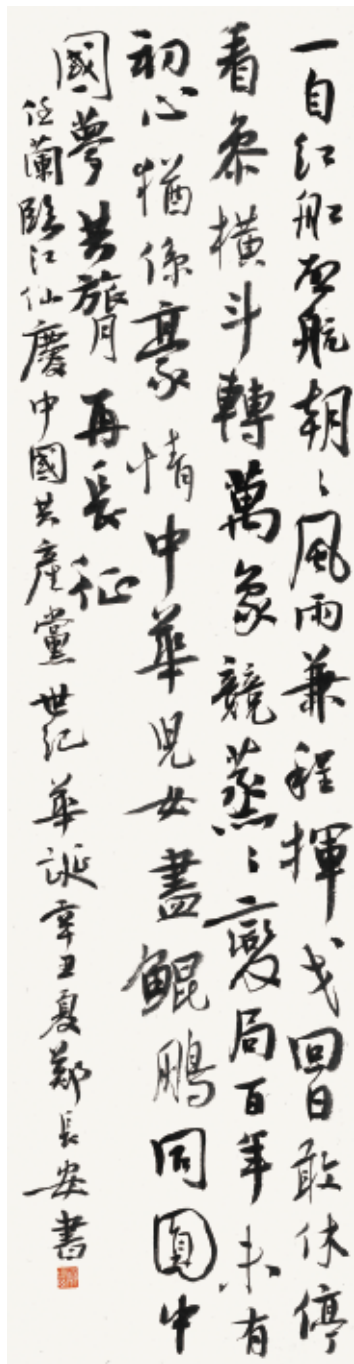 一自紅船启航朝〻風雨兼程揮戈回日敢休停
看參橫斗轉萬象競蒸〻變局百年未有
初心猶係豪情中華兒女盡鯤鵬同圓中
國夢共膂再長征
任蘭臨江仙慶中國共產黨世紀華誕辛丑夏鄭長安書